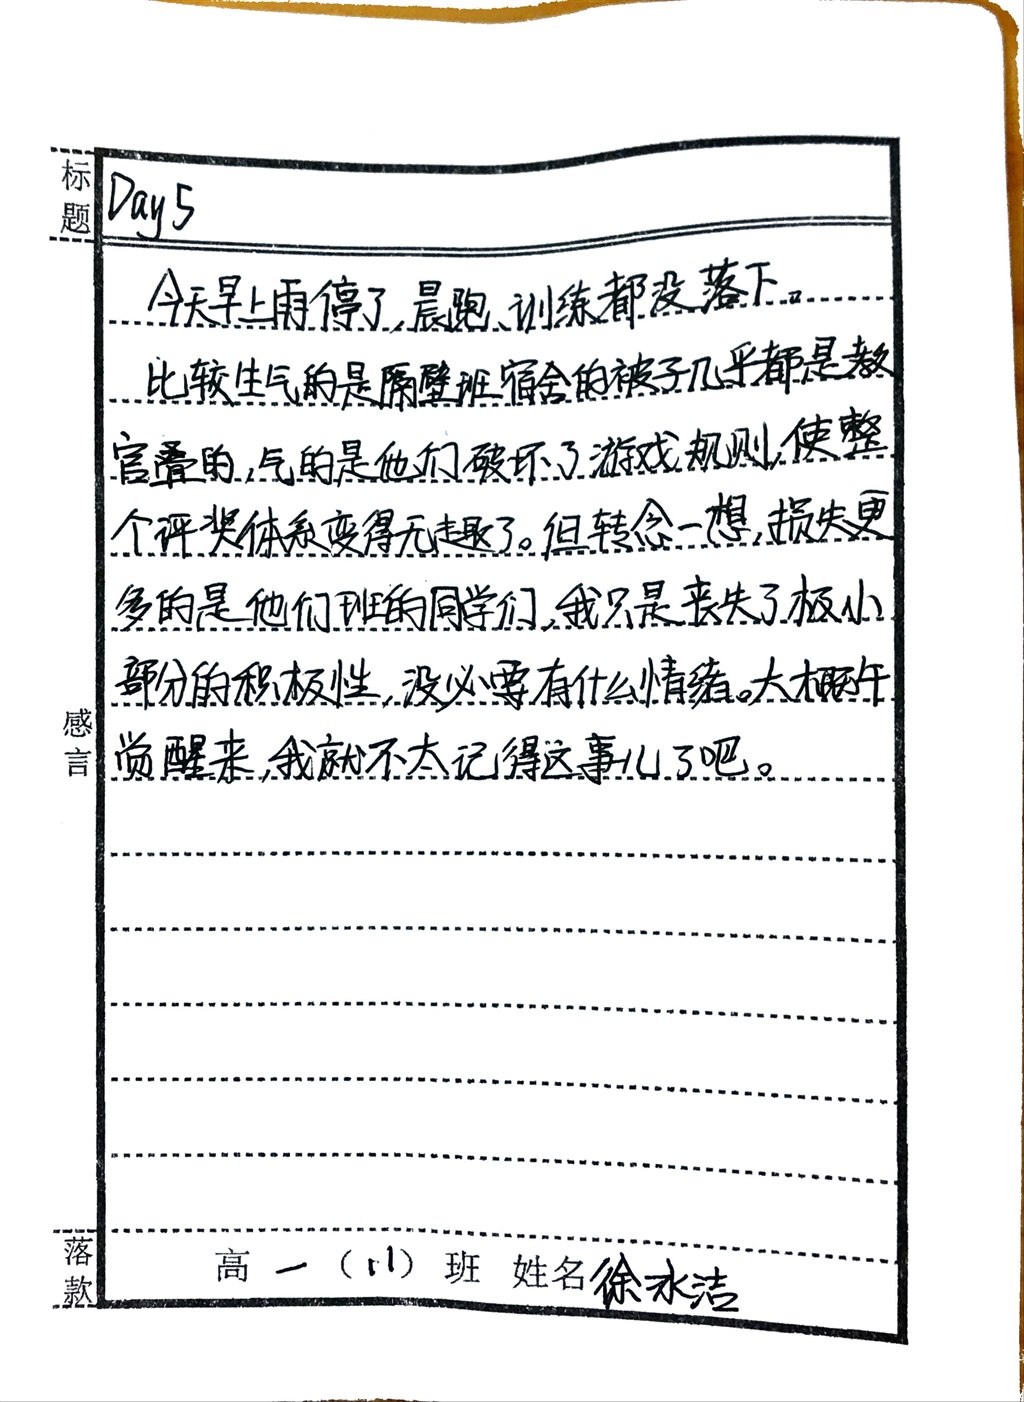 标题
Day 5
今天早上雨停了,晨跑、训练都没落下。
比较生气的是隔壁班宿舍的被子几乎都是教
官叠的,气的是他们破坏了游戏规则,使整
个评奖体系变得无趣了。但转念一想,损失更
多的是他们班的同学们,我只是丧失了极小
部分的积极性,没必要有什么情绪。大概午
觉醒来,我就不太记得这事儿了吧。
感言
落款
高一(11)班 姓名徐冰洁